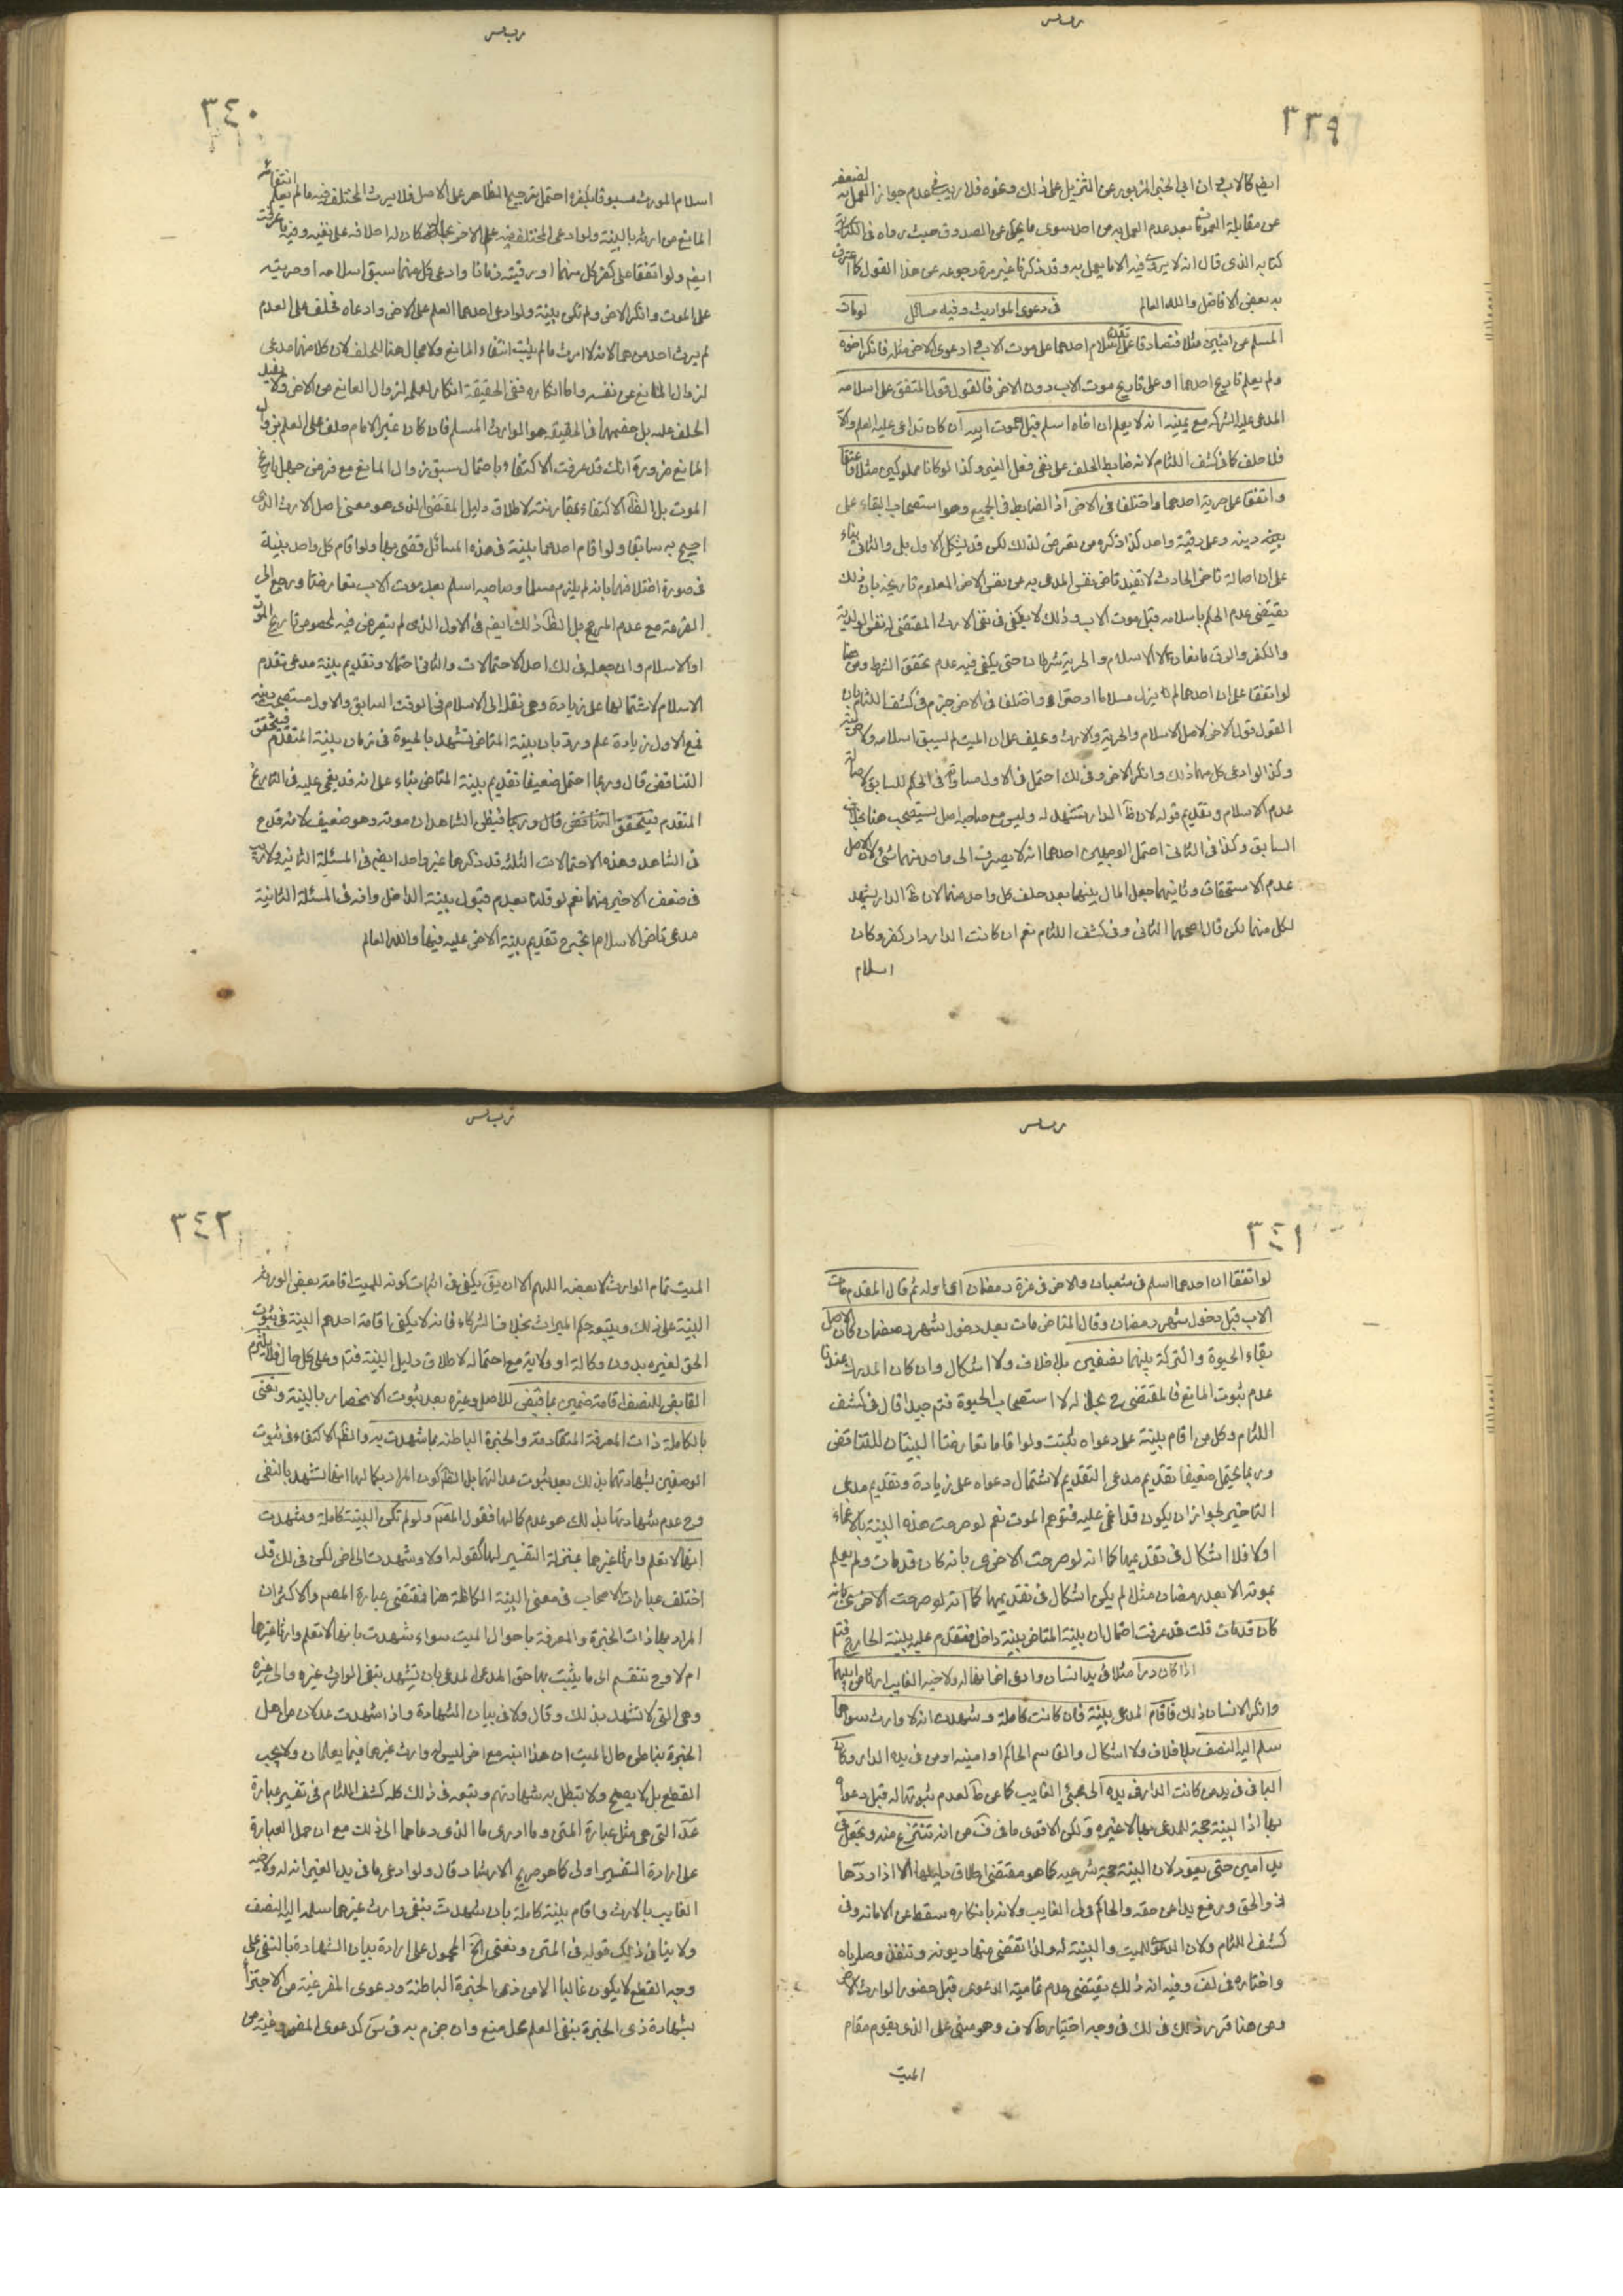 ٣٣٩
ايضا كالاب في ان ابي الجنب المزبور عن التنزيل على ذلك ونحوه فلا ريب في عدم جواز العمل به لضعفه
عن مقابلة بعد عدم العمل به من احد سوى ما يحكى عن الصدوق حيث رواه في
كتابه الذي قال انه لا يروى فيه الا ما يعمل به وقد ذكرنا غير مرة رجوعه عن هذا القول كما اعترف
به بعض الافاضل والله العالم في دعوى المواريث وفيه مسائل لو مات
المسلم عن ابنين مثلا فتصادقا على تقدم اسلام احدهما على موت الاب وادعى الاخر مثله فانكر اخوه
ولم يعلم تاريخ احدهما او على تاريخ موت الاب دون الاخر فالقول قول المتفق على اسلامه
المدعى عليه الشركة مع يمينه انه لا يعلم ان اخاه اسلم قبل موت ابيه ان كان يدعى عليه العلم والا
فلا حلف كما في كشف اللثام لانه ضابط الحلف على نفي فعل الغير وكذا لو كانا مملوكين مثلا فاعتقا
واتفقا على حرية احدهما واختلفا في الاخر اذ الضابط في الجميع هو استصحاب البقاء على
دينه وعلى رقيته واحد كذا ذكره من تعرض لذلك لكن قد يشكل الاول بل والثاني بناء
على ان اصالة تاخر الحادث لا تفيد تاخر نفس المدعى به عن نفس الاخر المعلوم تاريخه بان ذلك
يقتضي عدم الحكم باسلامه قبل موت الاب وذلك لا يكفي في نفي الارث المقتضي له نفس الولدية
والكفر والرق مانعان لا الاسلام والحرية شرطان حتى يكفي فيه عدم تحقق الشرط ومن هنا
لو اتفقا على ان احدهما لم يزل مسلما او حرا واختلفا في الاخر جزم في كشف اللثام بان
القول قول الاخر لاصل الاسلام والحرية والارث وحلف على ان الميت لم يسبق اسلامه ولا حريته
وكذا لو ادعى كل منهما ذلك وانكر الاخر وفي لك احتمل في الاول مساواته في الحكم للسابق لاصالة
عدم الاسلام وتقديم قوله لان ظاهر الدار تشهد له وليس مع صاحبه اصل يستصحب هنا بخلاف
السابق وكذا في الثاني احتمل الوجهين احدهما انه لا يصرف الى واحد منهما شيء لان الاصل
عدم الاستحقاق وثانيهما جعل المال بينهما بعد حلف كل واحد منهما لان ظاهر الدار يشهد
لكل منهما لكن قال اصحهما الثاني وفي كشف اللثام نعم ان كانت الدار دار كفر وكان
اسلام
٣٤٠
اسلام المورث مسبوقا بكفره احتمل ترجيح الظاهر على الاصل فلا يرث المختلف فيه ما لم يعلم انتفاء
المانع من ارثه بالبينة ولو ادعى المختلف فيه علم الاخر بحاله كان له احلافه على نفيه وفيه ما عرفت
ايضا ولو اتفقا على كفر كل منهما او رقيته زمانا وادعى كل منهما سبق اسلامه او حريته
على الموت وانكر الاخر ولم تكن بينة ولو ادعى احدهما العلم على الاخر وادعاه فحلف على العدم
لم يرث احد منهما لانه لا ارث ما لم يثبت انتفاء المانع ولا مجال هنا للحلف لان كلا منهما مدعي
لزوال المانع عن نفسه واما انكاره ففي الحقيقة انكار لعلمه لزوال المانع من الاخر ولا يفيد
الحلف عليه بل خصمهما في الحقيقة هو الوارث المسلم فان كان غير الامام حلف على العلم بزوال
المانع ضرورة انك قد عرفت الاكتفاء باحتمال سبق زوال المانع مع فرض جهل تاريخ
الموت بل الظاهر الاكتفاء بمقارنته لاطلاق دليل المقتضي الذي هو معنى اصل الارث الذي
احتج به سابقا ولو اقام احدهما بينة في هذه المسائل قضي بها ولو اقام كل واحد بينة
في صورة اختلافهما بانه لم يزل مسلما وصاحبه اسلم بعد موت الاب تعارضتا ورجع الى
القرعة مع عدم المرجح بل الظاهر ذلك ايضا في الاول الذي لم يتعرض فيه لخصوص تاريخ الموت
او الاسلام وان جعل في لك احد الاحتمالات والثاني احتمالا وتقديم بينة مدعي تقدم
الاسلام لاشتمالها على زيادة وهي نقله الى الاسلام في الوقت السابق والاول مستصحب دينه
فمع الاول زيادة علم ورد بان بينة المتاخر تشهد بالحيوة في زمان بينة المتقدم فيتحقق
التناقض قال وربما احتمل ضعيفا تقديم بينة المتاخر بناء على انه قد يغمى عليه في التاريخ
المتقدم فيتحقق التناقض قال وربما فيظن الشاهدان موته وهو ضعيف لانه قدح
في الشاهد وهذه الاحتمالات الثلثة قد ذكرها غير واحد ايضا في المسئلة الثانية ولا ريب
في ضعف الاخير منهما نعم لو قلنا بعدم قبول بينة الداخل وانه في المسئلة الثانية
مدعي تاخر الاسلام اتجه ح تقديم بينة الاخر عليه فيهما والله العالم
٣٤١
لو اتفقا ان احدهما اسلم في شعبان والاخر في غرة رمضان ثم قال المتقدم مات
الاب قبل دخول شهر رمضان وقال المتاخر مات بعد دخول شهر رمضان كان الاصل
بقاء الحيوة والتركة بينهما نصفين بلا خلاف ولا اشكال وان كان المدرك عندنا
عدم ثبوت المانع فالمقتضي ح بحاله لا استصحاب الحيوة فتم جيدا قال في كشف
اللثام وكل من اقام بينة على دعواه ثبتت ولو اقاما تعارضتا البينتان للتناقض
وربما يحتمل ضعيفا تقديم مدعي التقديم لاشتمال دعواه على زيادة وتقديم مدعي
التاخير لجواز ان يكون قد اغمي عليه فتوهم الموت نعم لو صرحت هذه البينة بالاغماء
اولا فلا اشكال في تقديمها كما انه لو صرحت الاخرى بانه كان قد مات ولم يعلم
بموته الا بعد رمضان مثلا لم يكن اشكال في تقديمها كما انه لو صرحت الاخرى بانه
كان قد مات قلت قد عرفت احتمال ان بينة المتاخر بينة داخل فتقدم عليه بينة الخارج فتم
اذا كان دار مثلا في يد انسان وادعى اخر انها له ولاخيه الغايب ارثا من ابيهما
وانكر الانسان ذلك فاقام المدعي بينة فان كانت كاملة وشهدت انه لا وارث سواهما
سلم اليه النصف بلا خلاف ولا اشكال والقاسم الحاكم او امينه او من في يده الدار وكان
الباقي في يد من كانت الدار في يده الى مجئ الغايب كما عن ط لعدم ثبوتها له قبل دعواه
بها اذ البينة حجة للمدعي بها لا غيره ولكن الاقوى ما في ف من انه تنتزع منه وتجعل في
يد امين حتى يعود لان البينة حجة شرعية كما هو مقتضى اطلاق دليلها الا اذا ردها
ذو الحق ورفع يدا عن حقه والحاكم ولي الغايب ولانه بانكاره سقط عن الامانة وفي
كشف اللثام ولان الدعوى للميت والبينة له ولذا تقضى منها ديونه وتنفذ وصاياه
واختاره في لف وفيه انه ذلك يقتضي عدم تمامية الدعوى قبل حضور الوارث الاخر
ومن هنا قرر ذلك في لك في وجه اختيار ط لا ف وهو مبني على الذي يقوم مقام
الميت
٣٤٢
الميت تمام الوارث لا بعضه اللهم الا ان يق يكفي في اثبات كونه للميت اقامة بعض الورثة
البينة على ذلك ويتبعه حكم الميراث بخلاف الشركاء فانه لا يكفي اقامة احدهم البينة في ثبوت
الحق لغيره بدون وكالة او ولاية مع احتماله لاطلاق دليل البينة فتم وعلى كل حال فلا يلزم
القابض للنصف اقامة ضمين بما قبض للاصل وغيره بعد ثبوت الانحصار بالبينة ونعني
بالكاملة ذات المعرفة المتقادمة والخبرة الباطنة بما شهدت به والظاهر الاكتفاء في ثبوت
الوصفين بشهادتهما بذلك بعد ثبوت عدالتهما بل الظاهر كون المراد بكمالها انها تشهد بالنفي
وح عدم شهادتها بذلك هو عدم كمالها فقول المصنف ولو لم تكن البينة كاملة وشهدت
انها لا تعلم وارثا غيرهما بمنزلة التفسير لها كقوله اولا وشهدت الى اخر لكن في لك قد
اختلف عبارات الاصحاب في معنى البينة الكاملة هنا فمقتضى عبارة المصنف والاكثر ان
المراد بها ذات الخبرة والمعرفة باحوال الميت سواء شهدت بانها لا تعلم وارثا غيرهما
ام لا وح تنقسم الى ما يثبت بها حق المدعي المدعي بان تشهد بنفي الوارث غيره والى غيره
وهي التي لا تشهد بذلك وقال ولا في بيان الشهادة واذا شهدت عدلان من اهل
الخبرة بباطن حال الميت ان هذا ابنه مع اخر ليس له وارث غيرهما فيما يعلمان ولا يجب
القطع بل لا يصح ولا تبطل به شهادتهم وتبعه في ذلك كله كشف اللثام في تفسير عبارة
عد التي هي مثل عبارة المتن وما ادري ما الذي دعاهما الى ذلك مع ان حمل العبارة
على ارادة التفسير اولى كما هو صريح الارشاد قال ولو ادعى ما في يد الغير انه له ولاخيه
الغايب بالارث واقام بينة كاملة بان شهدت بنفي وارث غيرهما سلم اليه النصف
ولا ينافي ذلك قوله في المتن ونعني الخ المحمول على ارادة بيان الشهادة بالنفي على
وجه القطع لا يكون غالبا الا من ذوي الخبرة الباطنة ودعوى المفروغية من الاجتزاء
بشهادة ذي الخبرة بنفي العلم محل منع وان جزم به في س كدعوى المفروغية من